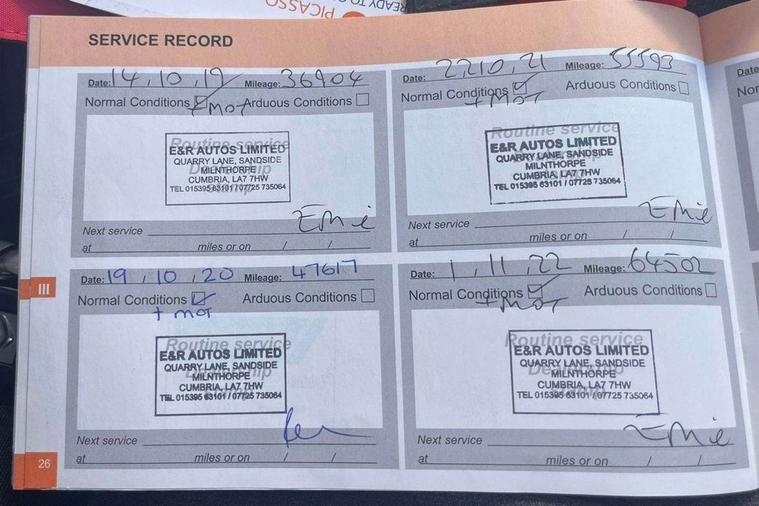 PICASSO
READY TO
SERVICE RECORD
Date: 14, 10, 19 Mileage: 36904
Normal Conditions ☑ Arduous Conditions ☐
+ MOT
Routine service
E&R AUTOS LIMITED
QUARRY LANE, SANDSIDE
MILNTHORPE
CUMBRIA, LA7 7HW
TEL 015395 63101 / 07725 735064
Ernie
Next service
at miles or on / /
Date: 19, 10, 20 Mileage: 47617
Normal Conditions ☑ Arduous Conditions ☐
+ MOT
Routine service
E&R AUTOS LIMITED
QUARRY LANE, SANDSIDE
MILNTHORPE
CUMBRIA, LA7 7HW
TEL 015395 63101 / 07725 735064
Next service
at miles or on / /
Date: 22, 10, 21 Mileage: 55593
Normal Conditions ☑ Arduous Conditions ☐
+ MOT
Routine service
E&R AUTOS LIMITED
QUARRY LANE, SANDSIDE
MILNTHORPE
CUMBRIA, LA7 7HW
TEL 015395 63101 / 07725 735064
Ernie
Next service
at miles or on / /
Date: 1, 11, 22 Mileage: 64502
Normal Conditions ☑ Arduous Conditions ☐
+ MOT
Routine service
E&R AUTOS LIMITED
QUARRY LANE, SANDSIDE
MILNTHORPE
CUMBRIA, LA7 7HW
TEL 015395 63101 / 07725 735064
Ernie
Next service
at miles or on / /
III
26
Date
Nor